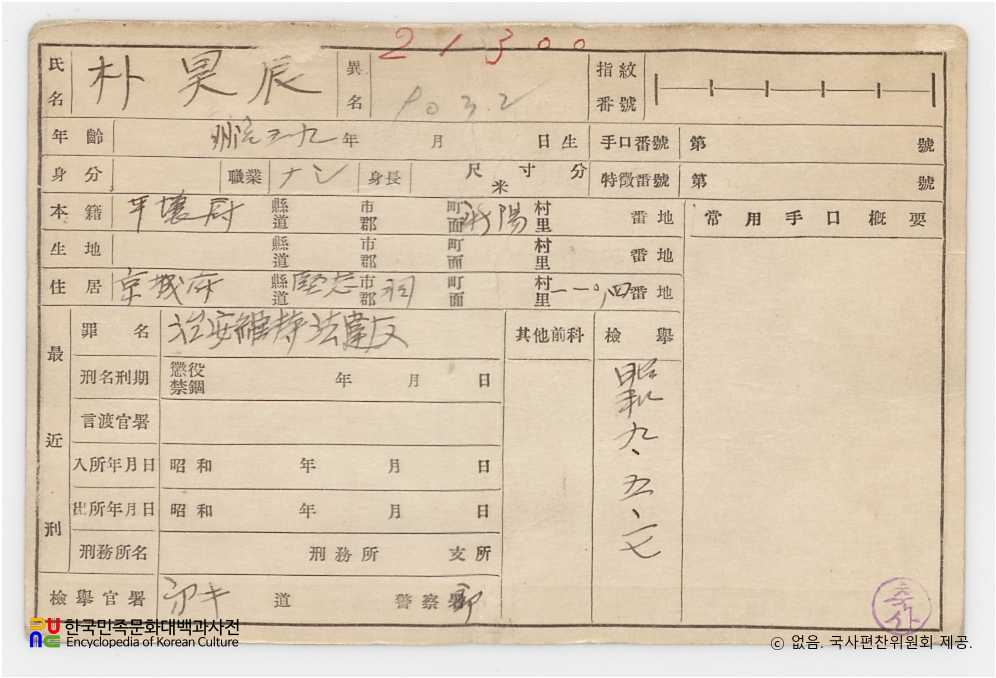 21300
氏名 朴昊辰 異名 903.2 指紋番號
年齡 明治三九年 月 日生 手口番號 第 號
身分 職業 ナシ 身長 尺 寸 分 米 特徵番號 第 號
本籍 平壤府 縣道 市郡 町面 新陽 村里 番地 常用手口概要
生地 縣道 市郡 町面 村里 番地
住居 京城府 縣道 堅志 市郡 町面 村里 番地
最近刑
罪名 治安維持法違反 其他前科 檢擧
刑名刑期 懲役 禁錮 年 月 日
昭和九、五、一七
言渡官署
入所年月日 昭和 年 月 日
出所年月日 昭和 年 月 日
刑務所名 刑務所 支所
檢擧官署 京キ 道 警察 部
축사
한국민족문화대백과사전
Encyclopedia of Korean Culture
ⓒ 없음. 국사편찬위원회 제공.